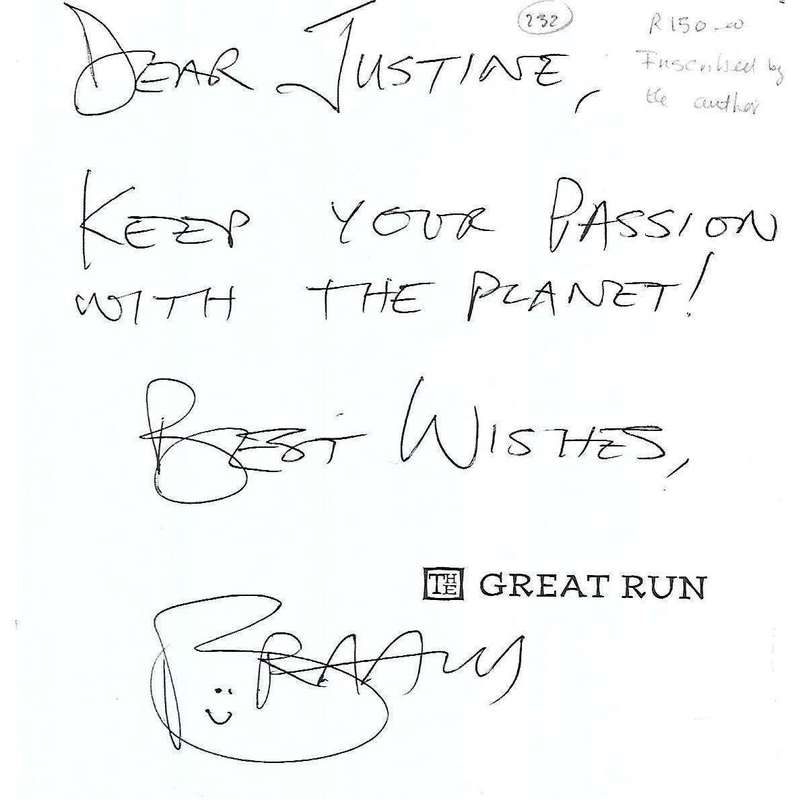 232
R150.00
Inscribed by
the author
DEAR JUSTINE,
KEEP YOUR PASSION
WITH THE PLANET!
BEST WISHES,
THE GREAT RUN
BRAAM